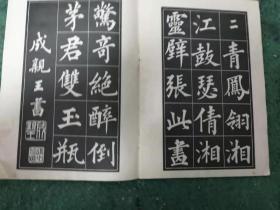 二青鳳翎湘
江鼓瑟倩湘
靈壁張此畫
驚奇絕醉倒
茅君雙玉瓶
成親王書